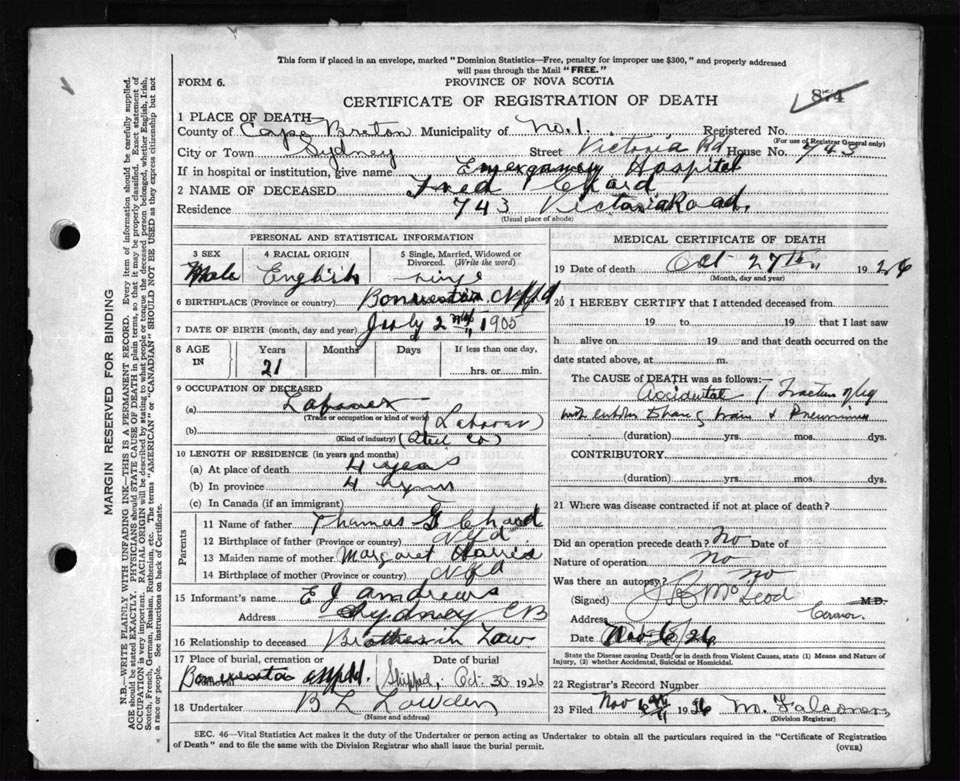 This form if placed in an envelope, marked "Dominion Statistics—Free, penalty for improper use $300," and properly addressed
will pass through the Mail "FREE."
FORM 6.
PROVINCE OF NOVA SCOTIA
874
CERTIFICATE OF REGISTRATION OF DEATH
1 PLACE OF DEATH
County of Cape Breton Municipality of No. 1. Registered No.
(For use of Registrar General only)
City or Town Sydney Street Victoria Rd House No. 743
If in hospital or institution, give name Emergancy Hospital
2 NAME OF DECEASED Fred Chard
Residence 743 Victoria Road
(Usual place of abode)
PERSONAL AND STATISTICAL INFORMATION
3 SEX Male
4 RACIAL ORIGIN English
5 Single, Married, Widowed or Divorced. (Write the word)
6 BIRTHPLACE (Province or country) Nfld
7 DATE OF BIRTH (month, day and year) July 2nd 1905
8 AGE IN
Years 21
Months
Days
If less than one day, hrs. or min.
9 OCCUPATION OF DECEASED
(a) Laborer
(Trade or occupation or kind of work) (Laborer)
(b)
(Kind of industry) (Steel Co)
10 LENGTH OF RESIDENCE (in years and months)
(a) At place of death 4 years
(b) In province 4 years
(c) In Canada (if an immigrant)
Parents
11 Name of father Thomas G Chard
12 Birthplace of father (Province or country) Nfd
13 Maiden name of mother Margaret Harris
14 Birthplace of mother (Province or country) Nfd
15 Informant's name E J Andrews
Address Sydney CB
16 Relationship to deceased Brother in Law
17 Place of burial, cremation or removal Nfld.
Date of burial
Shipped, Oct. 30 1926
18 Undertaker B L Lowden
(Name and address)
MEDICAL CERTIFICATE OF DEATH
19 Date of death Oct 27th, 1926
(Month, day and year)
20 I HEREBY CERTIFY that I attended deceased from
19 to 19 that I last saw
h alive on 19 and that death occurred on the
date stated above, at m.
The CAUSE of DEATH was as follows:—
Accidental Fracture of leg
train & Pneumonia
(duration) yrs. mos. dys.
CONTRIBUTORY
(duration) yrs. mos. dys.
21 Where was disease contracted if not at place of death?
Did an operation precede death? No Date of
Nature of operation no
Was there an autopsy? no
(Signed) McLeod M.D.
Address Coroner
Date Nov 6/26
State the Disease causing Death; or in death from Violent Causes, state (1) Means and Nature of
Injury, (2) whether Accidental, Suicidal or Homicidal.
22 Registrar's Record Number
23 Filed Nov 6th 1926 M. Falconer
(Division Registrar)
SEC. 46—Vital Statistics Act makes it the duty of the Undertaker or person acting as Undertaker to obtain all the particulars required in the "Certificate of Registration
of Death" and to file the same with the Division Registrar who shall issue the burial permit.
(OVER)
MARGIN RESERVED FOR BINDING
N.B.—WRITE PLAINLY WITH UNFADING INK—THIS IS A PERMANENT RECORD. Every item of information should be carefully supplied.
AGE should be stated EXACTLY. PHYSICIANS should STATE CAUSE OF DEATH in plain terms, so that it may be properly classified. Exact statement of
OCCUPATION is very important. RACIAL ORIGIN will be described by stating to what people or tongue the deceased person belonged, whether English, Irish,
Scotch, French, German, Russian, Ruthenian, etc. The terms "AMERICAN" or "CANADIAN" SHOULD NOT BE USED as they express citizenship but not
a race or people. See instructions on back of Certificate.